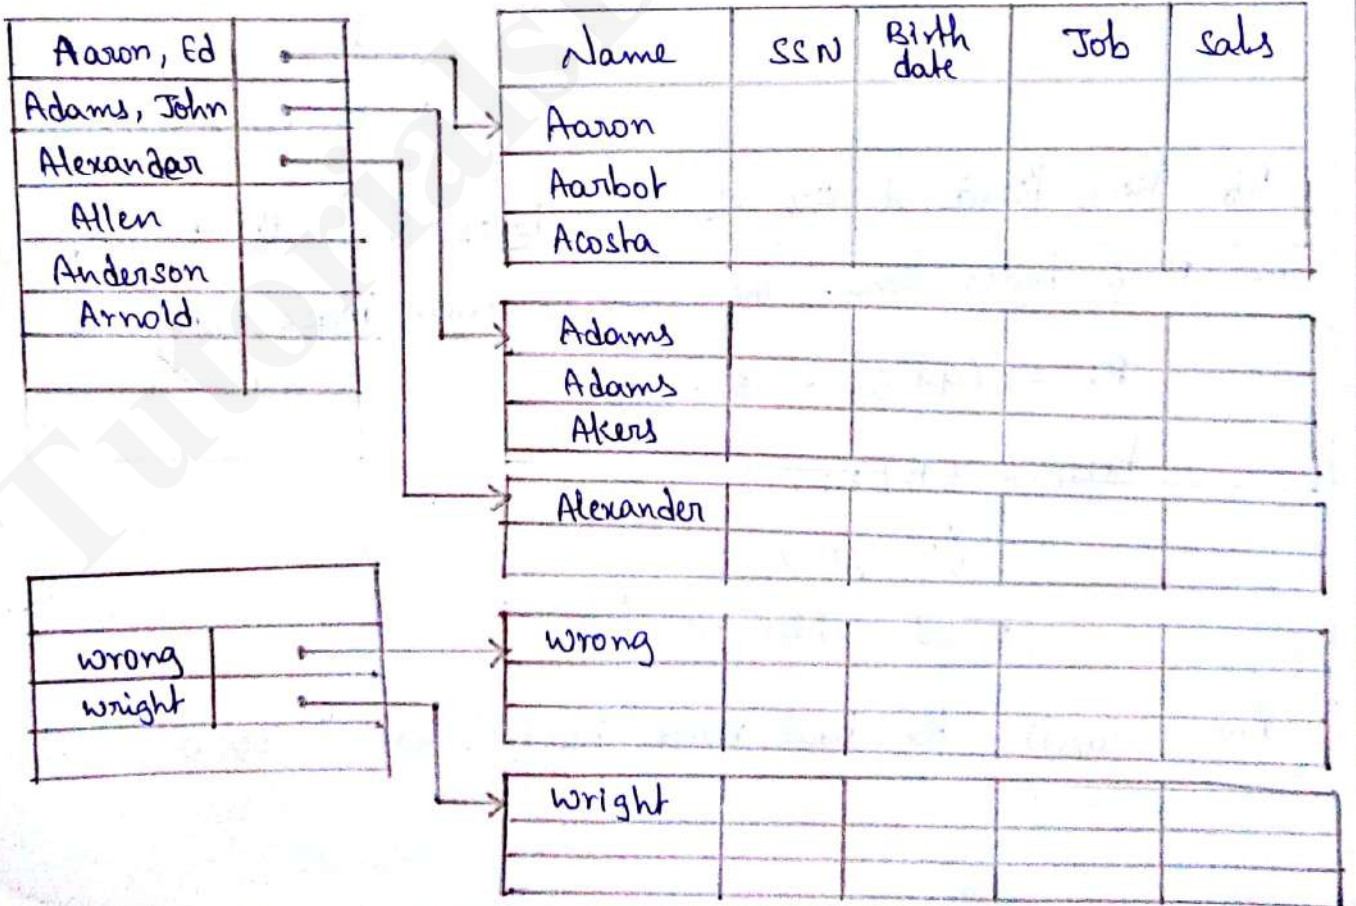 Aaron, Ed
Adams, John
Alexandar
Allen
Anderson
Arnold.
wrong
wright
Name SSN Birth date Job Sals
Aaron
Aarbot
Acosta
Adams
Adams
Akers
Alexander
wrong
wright
Tutorials